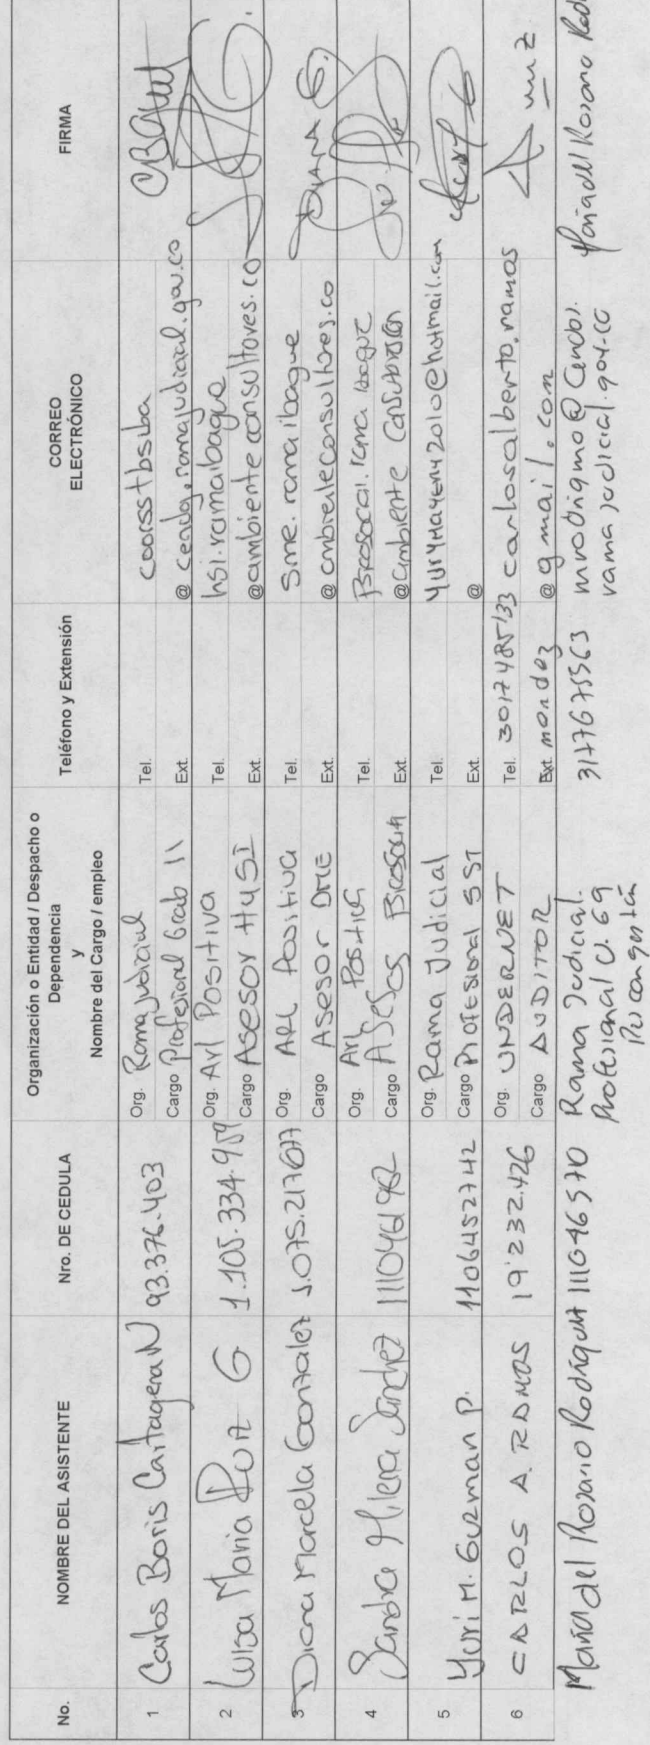 No.
NOMBRE DEL ASISTENTE
Nro. DE CEDULA
Organización o Entidad / Despacho o
Dependencia
y
Nombre del Cargo / empleo
Teléfono y Extensión
CORREO
ELECTRÓNICO
FIRMA
1
Carlos Boris Cartagena N
93.376.403
Org. Rama Judicial
Cargo Profesional Grado 11
Tel.
Ext.
coorsstbsiba
@ cendoj.ramajudicial.gov.co
2
Luisa Maria Ruiz G
1.105.334.959
Org. Arl Positiva
Cargo Asesor HySI
Tel.
Ext.
hsi.ramaibague
@ambienteconsultores.co
3
Diana Marcela Gonzalez
1.075.217677
Org. ARL Positiva
Cargo Asesor DME
Tel.
Ext.
sme.ramaibague
@ ambienteconsultores.co
DIANA G.
4
Sandra Milena Sanchez
1110461962
Org. Arl Positiva
Cargo
Tel.
Ext.
@ambiente
5
Yuri M. Guzman P.
1106452742
Org. Rama Judicial
Cargo Profesional SST
Tel.
Ext.
yurymayeny2010@hotmail.com
@
6
CARLOS A. RAMOS
19'232.426
Org. UNDERNET
Cargo AUDITOR
Tel. 3017485133
Ext.
carlosalberto.ramos
@gmail.com
Maria del Rosario Rodriguez
111046570
Rama Judicial.
Profesional U. G9
3176715563
ramajudicial.gov.co
Maria del Rosario Rod